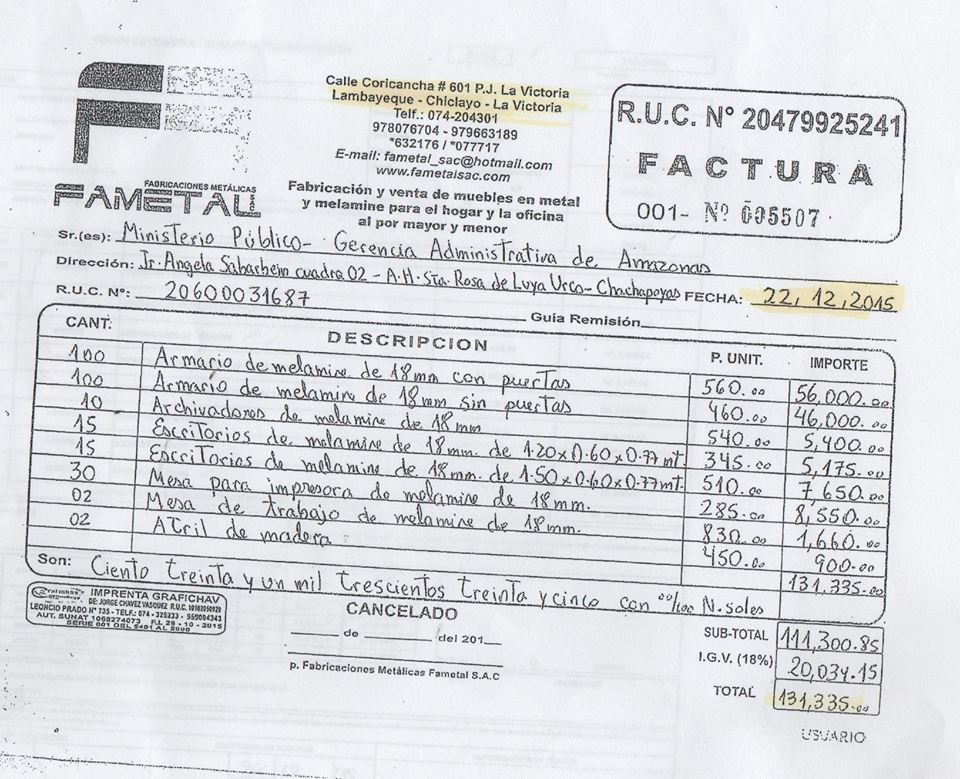 Calle Coricancha # 601 P.J. La Victoria
Lambayeque - Chiclayo - La Victoria
Telf.: 074-204301
978076704 - 979663189
*632176 / *077717
E-mail: fametal_sac@hotmail.com
www.fametalsac.com
FABRICACIONES METÁLICAS
FAMETAL
Fabricación y venta de muebles en metal
y melamine para el hogar y la oficina
al por mayor y menor
R.U.C. N° 20479925241
FACTURA
001- Nº 005507
Sr.(es): Ministerio Público - Gerencia Administrativa de Amazonas
Dirección: Jr. Angela Sabarbein cuadra 02 - A.H. Sta. Rosa de Luya Urco - Chachapoyas FECHA: 22, 12, 2015
R.U.C. N°: 20600031687 Guía Remisión
CANT. DESCRIPCION P. UNIT. IMPORTE
100 Armario de melamine de 18mm con puertas 560.00 56,000.00
100 Armario de melamine de 18mm sin puertas 460.00 46,000.00
10 Archivadores de melamine de 18mm 540.00 5,400.00
15 Escritorios de melamine de 18mm. de 1.20x0.60x0.77mt. 345.00 5,175.00
15 Escritorios de melamine de 18mm. de 1.50x0.60x0.77mt. 510.00 7,650.00
30 Mesa para impresora de melamine de 18mm. 285.00 8,550.00
02 Mesa de trabajo de melamine de 18mm. 830.00 1,660.00
02 Atril de madera 450.00 900.00
131,335.00
Son: Ciento treinta y un mil trescientos treinta y cinco con 00/100 N. soles
IMPRENTA GRAFICHAV
DE: JORGE CHAVEZ VASQUEZ R.U.C. 10102050120
LEONCIO PRADO N° 735 - TELF.: 074 - 325233 - 959084343
AUT. SUNAT 1068274073 F.I. 29 - 10 - 2015
SERIE 001 DEL 5401 AL 5900
CANCELADO
de del 201
p. Fabricaciones Metálicas Fametal S.A.C
SUB-TOTAL 111,300.85
I.G.V. (18%) 20,034.15
TOTAL 131,335.00
USUARIO